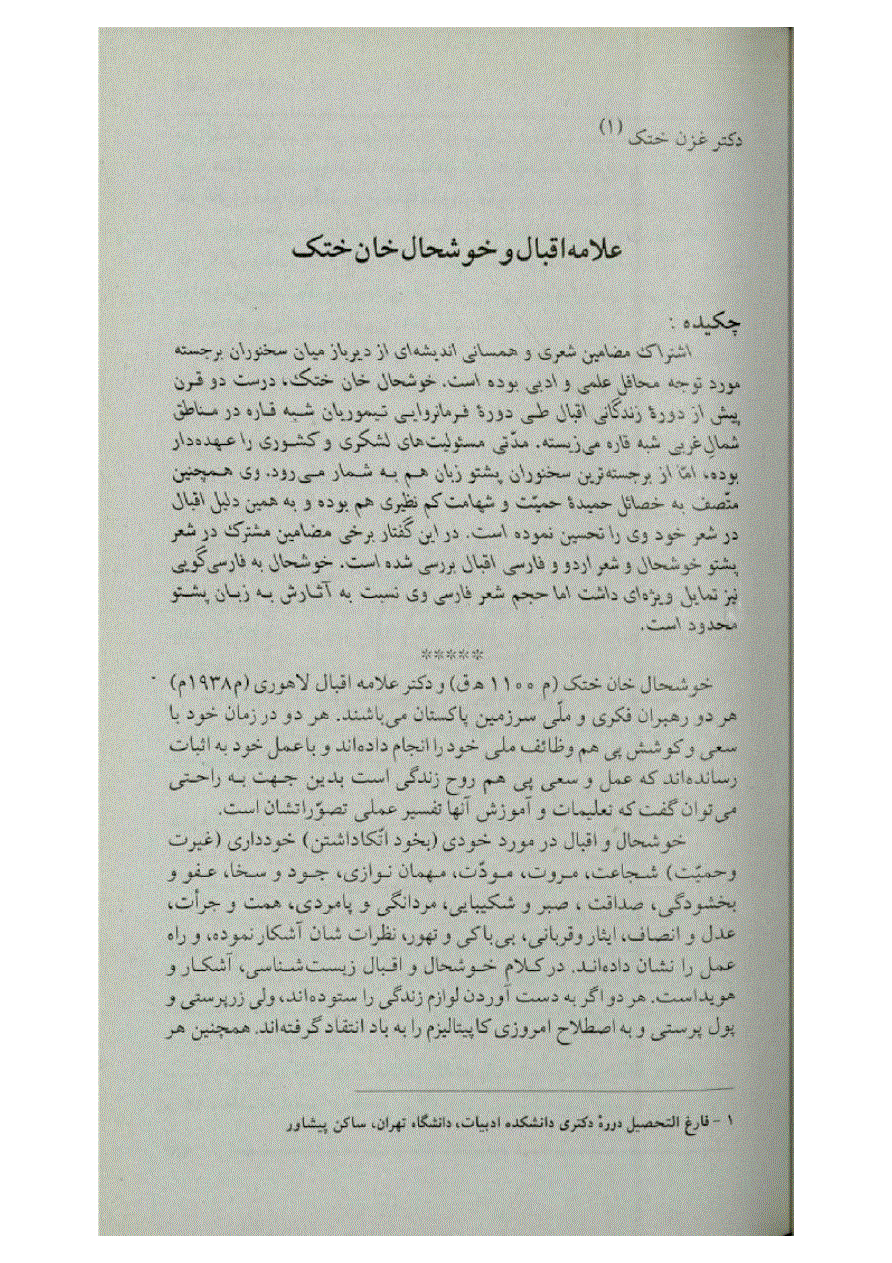 دکتر غزن ختک (۱)
علامه اقبال و خوشحال خان ختک
چکیده :
اشتراک مضامین شعری و همسانی اندیشه‌ای از دیرباز میان سخنوران برجسته
مورد توجه محافل علمی و ادبی بوده است. خوشحال خان ختک، درست دو قرن
پیش از دورهٔ زندگانی اقبال طی دورهٔ فرمانروایی تیموریان شبه قاره در مناطق
شمال غربی شبه قاره می‌زیسته. مدّتی مسئولیت‌های لشکری و کشوری را عهده‌دار
بوده، امّا از برجسته‌ترین سخنوران پشتو زبان هم به شمار می‌رود. وی همچنین
متّصف به خصائل حمیدهٔ حمیّت و شهامت کم نظیری هم بوده و به همین دلیل اقبال
در شعر خود وی را تحسین نموده است. در این گفتار برخی مضامین مشترک در شعر
پشتو خوشحال و شعر اردو و فارسی اقبال بررسی شده است. خوشحال به فارسی‌گویی
نیز تمایل ویژه‌ای داشت اما حجم شعر فارسی وی نسبت به آثارش به زبان پشتو
محدود است.
*****
خوشحال خان ختک (م ۱۱۰۰ ه‍ ق) و دکتر علامه اقبال لاهوری (م۱۹۳۸م)
هر دو رهبران فکری و ملّی سرزمین پاکستان می‌باشند. هر دو در زمان خود با
سعی و کوشش پی هم وظائف ملی خود را انجام داده‌اند و با عمل خود به اثبات
رسانده‌اند که عمل و سعی پی هم روح زندگی است بدین جهت به راحتی
می‌توان گفت که تعلیمات و آموزش آنها تفسیر عملی تصوّراتشان است.
خوشحال و اقبال در مورد خودی (بخود اتّکاداشتن) خودداری (غیرت
وحمیّت) شجاعت، مروت، مودّت، مهمان نوازی، جود و سخا، عفو و
بخشودگی، صداقت ، صبر و شکیبایی، مردانگی و پامردی، همت و جرأت،
عدل و انصاف، ایثار وقربانی، بی‌باکی و تهور، نظرات شان آشکار نموده، و راه
عمل را نشان داده‌اند. در کلام خوشحال و اقبال زیست‌شناسی، آشکار و
هویداست. هر دو اگر به دست آوردن لوازم زندگی را ستوده‌اند، ولی زرپرستی و
پول پرستی و به اصطلاح امروزی کاپیتالیزم را به باد انتقاد گرفته‌اند. همچنین هر
۱ - فارغ التحصیل دررهٔ دکتری دانشکده ادبیات، دانشگاه تهران، ساکن پیشاور